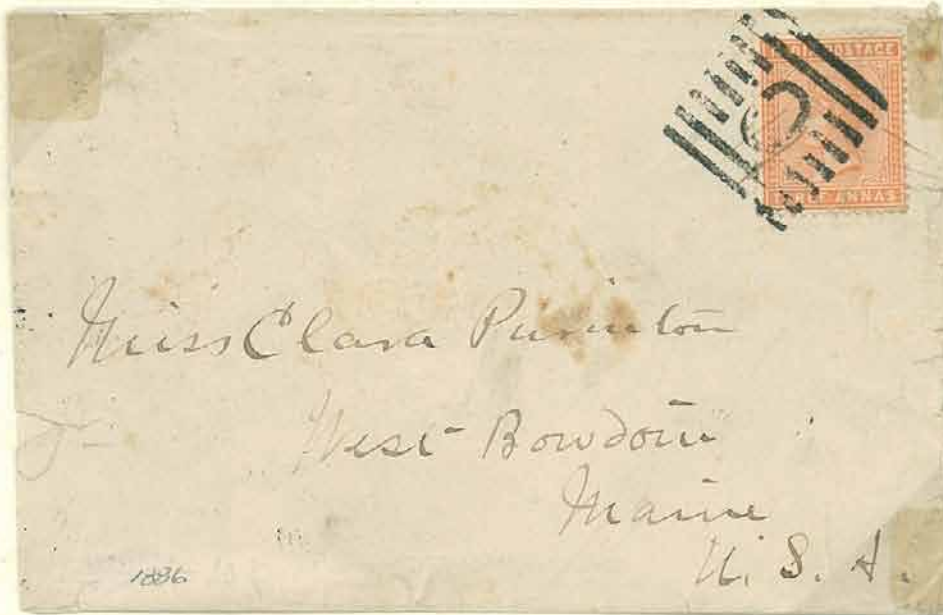 POSTAGE
ANNAS
Miss Clara Purinton
West Bowdoin
Maine
U. S. A.
1886